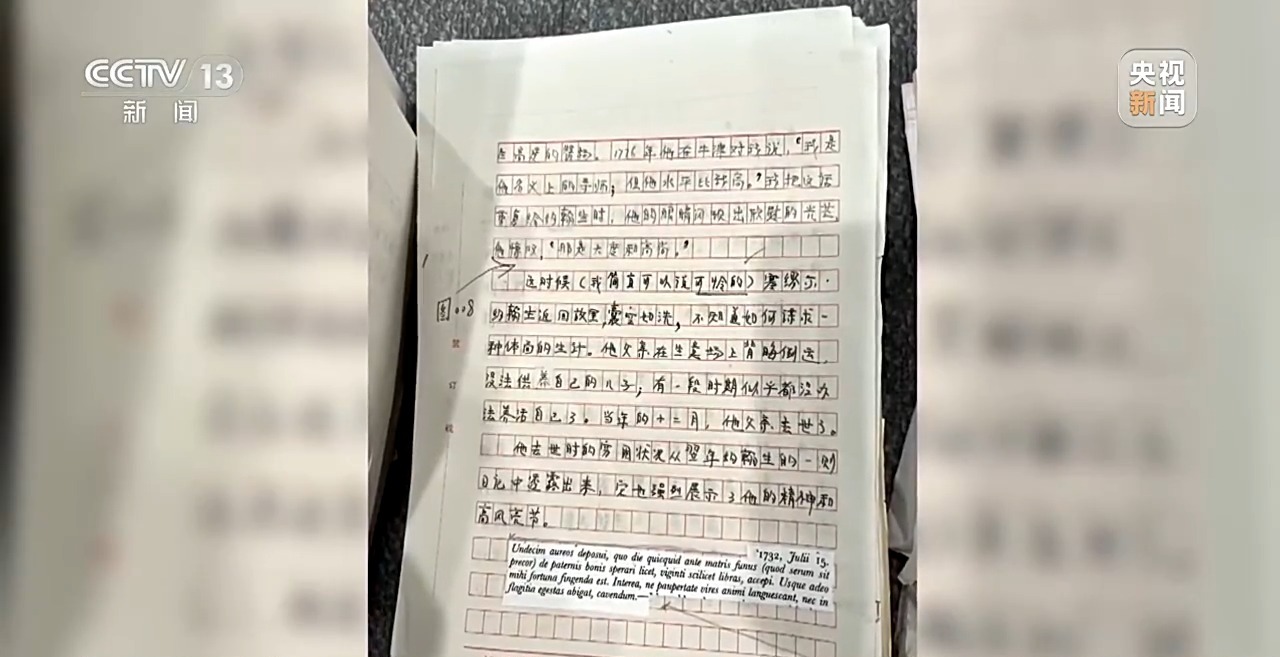 CCTV 13
新闻
央视
新闻
1776年他在牛津对我说，“我是
他名义上的导师；但他水平比我高。”我把这话
重复给约翰生时，他的眼睛闪现出欣慰的光芒，
他惊叹，“那是大度和高尚。”
这时候（我简直可以说可怜的）塞缪尔·
约翰生返回故里，囊空如洗，不知道如何谋求一
种体面的生计。他父亲在生意场上背晦倒运，
没法供养自己的儿子；有一段时期似乎都没办
法养活自己了。当年的十二月，他父亲去世了。
他去世时的穷困状况从翌年约翰生的一则
日记中透露出来，它也强烈展示了他的精神和
高风亮节。
图008
装
订
线
'1732, Julii 15.
Undecim aureos deposui, quo die quicquid ante matris funus (quod serum sit
precor) de paternis bonis sperari licet, viginti scilicet libras, accepi. Usque adeo
mihi fortuna fingenda est. Interea, ne paupertate vires animi languescant, nec in
flagitia egestas abigat, cavendum.—